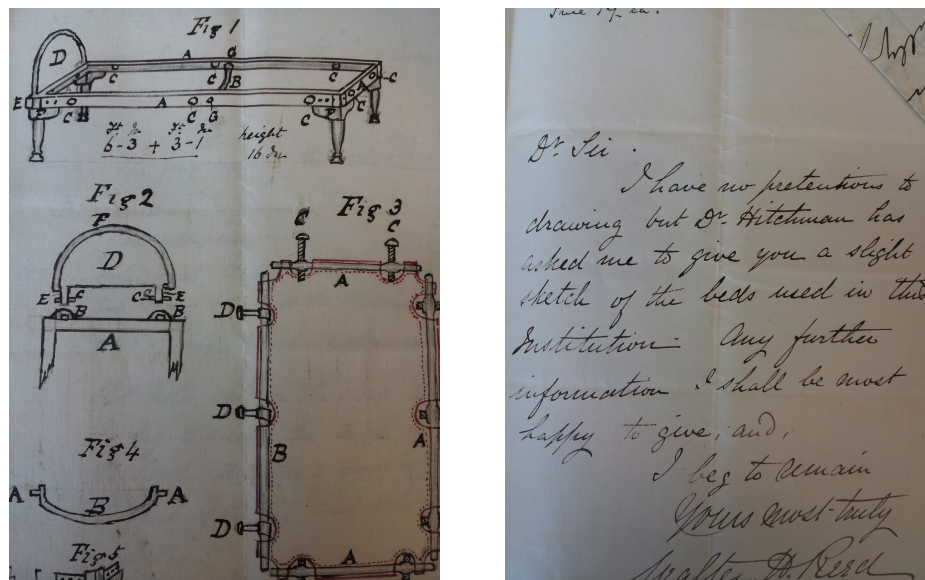 Fig 1
D
A
G
C
C
C
C
B
A
A
E
F
C
C
G
C
F
C
Ft In Ft In
6-3 + 3-1
height
16 In
Fig 2
F
D
E
C
C
E
B
B
A
Fig 3
C
C
A
D
D
A
B
D
A
Fig 4
A
B
A
Fig 5
Dr. Sir.
I have no pretentions to
drawing but Dr. Hitchman has
asked me to give you a slight
sketch of the beds used in this
Institution. Any further
information I shall be most
happy to give, and,
I beg to remain
Yours most truly
Walter H Reed